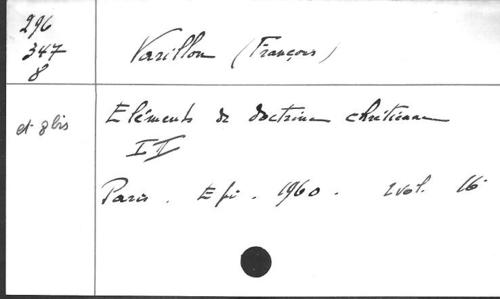 296
347
8
Varillon (François)
et 8 bis
Eléments de doctrine chrétienne
I II
Paris. Epi. 1960. 2 vol. 16